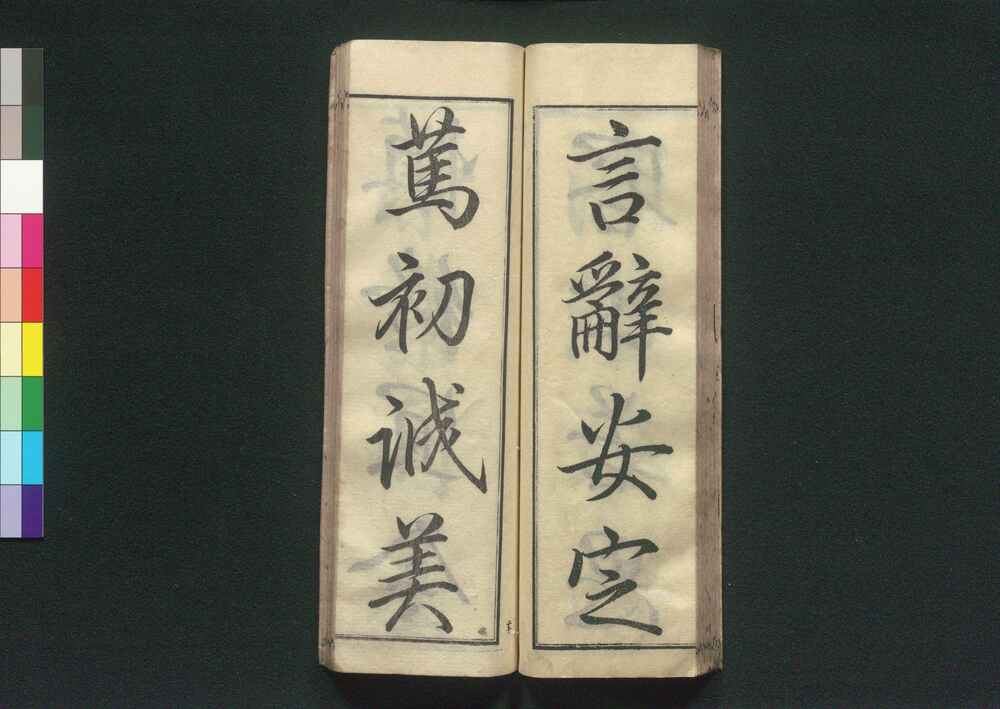 言辭安定
篤初誠美